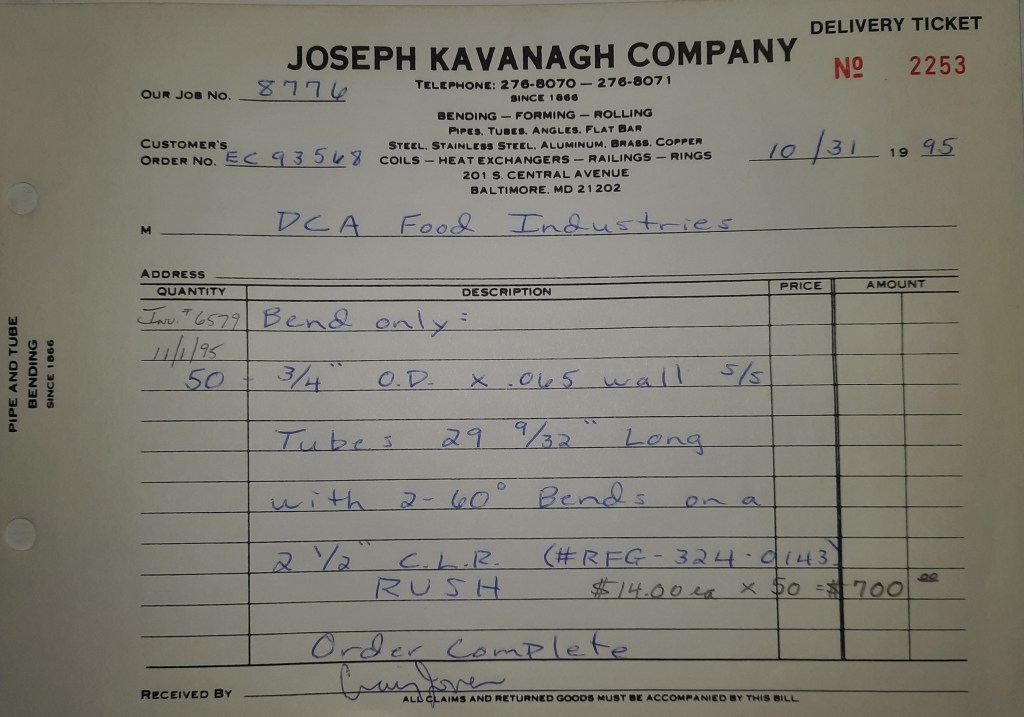 DELIVERY TICKET
JOSEPH KAVANAGH COMPANY
Nº 2253
TELEPHONE: 276-8070 — 276-8071
OUR JOB NO. 8776
SINCE 1866
BENDING — FORMING — ROLLING
PIPES, TUBES, ANGLES, FLAT BAR
CUSTOMER'S
STEEL, STAINLESS STEEL, ALUMINUM, BRASS, COPPER
ORDER NO. EC93568
COILS — HEAT EXCHANGERS — RAILINGS — RINGS
10/31 1995
201 S. CENTRAL AVENUE
BALTIMORE, MD 21202
M DCA Food Industries
ADDRESS
QUANTITY DESCRIPTION PRICE AMOUNT
Inv. #6579 Bend only:
11/1/95
50 - 3/4" O.D. x .065 wall s/s
Tubes 29 9/32" Long
with 2-60° Bends on a
2 1/2" C.L.R. (#RFG-324-0143)
RUSH $14.00 ea x 50 = $700 00
Order Complete
RECEIVED BY
ALL CLAIMS AND RETURNED GOODS MUST BE ACCOMPANIED BY THIS BILL
PIPE AND TUBE
BENDING
SINCE 1866